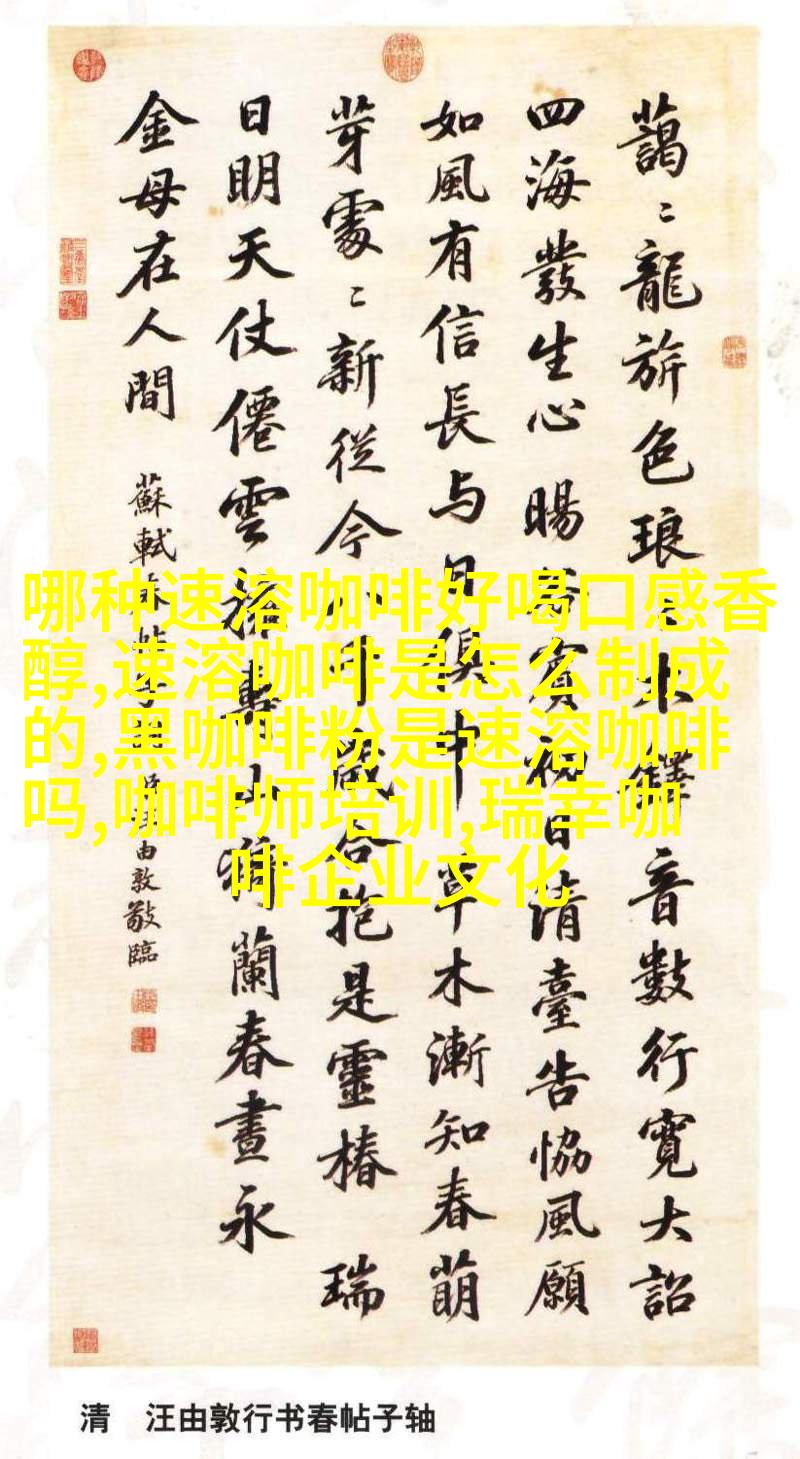 藹〻龍旂色琅〻木鐸音數行寬大詔
四海發生心 暘谷賓初日清臺告協風願
如風有信長与日俱中 草木漸知春萌
芽處〻新從今八千歲合抱是靈椿 瑞
日明天仗僊雲擁壽山猗蘭春晝永
金母在人間 蘇軾春帖子 汪由敦敬臨
哪种速溶咖啡好喝口感香
醇,速溶咖啡是怎么制成
的,黑咖啡粉是速溶咖啡
吗,咖啡师培训,瑞幸咖
啡企业文化
清 汪由敦行书春帖子轴